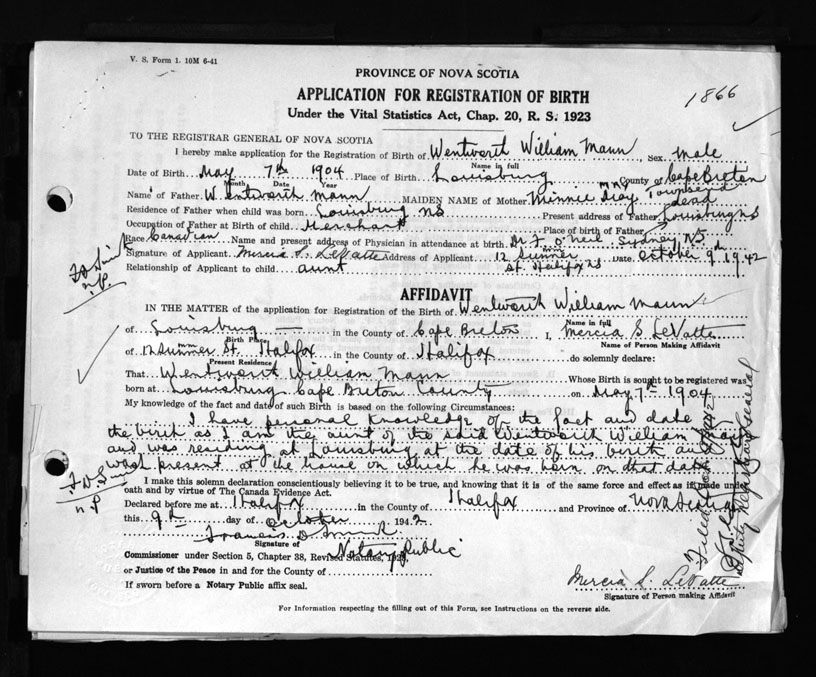 V. S. Form 1. 10M 6-41
PROVINCE OF NOVA SCOTIA
APPLICATION FOR REGISTRATION OF BIRTH
1866
Under the Vital Statistics Act, Chap. 20, R. S. 1923
TO THE REGISTRAR GENERAL OF NOVA SCOTIA
I hereby make application for the Registration of Birth of Wentworth William Mann Sex Male
Name in full
Date of Birth May 7th 1904 Place of Birth Louisburg County of Cape Breton
Month Date Year
Name of Father Wentworth Mann MAIDEN NAME of Mother Minnie Townsend
Residence of Father when child was born Louisburg NS Present address of Father dead
Occupation of Father at Birth of child Merchant Place of birth of Father Louisburg NS
Race Canadian Name and present address of Physician in attendance at birth Dr F O'Neil Sydney NS
Signature of Applicant Mercia S. LeVatte Address of Applicant 12 Summer St. Halifax NS Date October 9th 1942
Relationship of Applicant to child aunt
F D Smith
n.P.
AFFIDAVIT
IN THE MATTER of the application for Registration of the Birth of Wentworth William Mann
Name in full
of Louisburg in the County of Cape Breton I, Mercia S. LeVatte
Birth Place
Name of Person Making Affidavit
of 12 Summer St. Halifax in the County of Halifax do solemnly declare:
Present Residence
That Wentworth William Mann Whose Birth is sought to be registered was
born at Louisburg Cape Breton County on May 7th 1904
My knowledge of the fact and date of such Birth is based on the following Circumstances:
I have personal knowledge of the fact and date of
the birth as I am the aunt of the said Wentworth William Mann
and was residing at Louisburg at the date of his birth and
was present at the house on which he was born on that date
F. D. Smith
n.P
I make this solemn declaration conscientiously believing it to be true, and knowing that it is of the same force and effect as if made under
oath and by virtue of The Canada Evidence Act.
Declared before me at Halifax in the County of Halifax and Province of Nova Scotia
this 9th day of October 1942
Francis D Smith
Signature of
Notary Public
Commissioner under Section 5, Chapter 38, Revised Statutes, 1923.
or Justice of the Peace in and for the County of
If sworn before a Notary Public affix seal.
Mercia S. LeVatte
Signature of Person making Affidavit
For Information respecting the filling out of this Form, see Instructions on the reverse side.
Deputy Registrar General